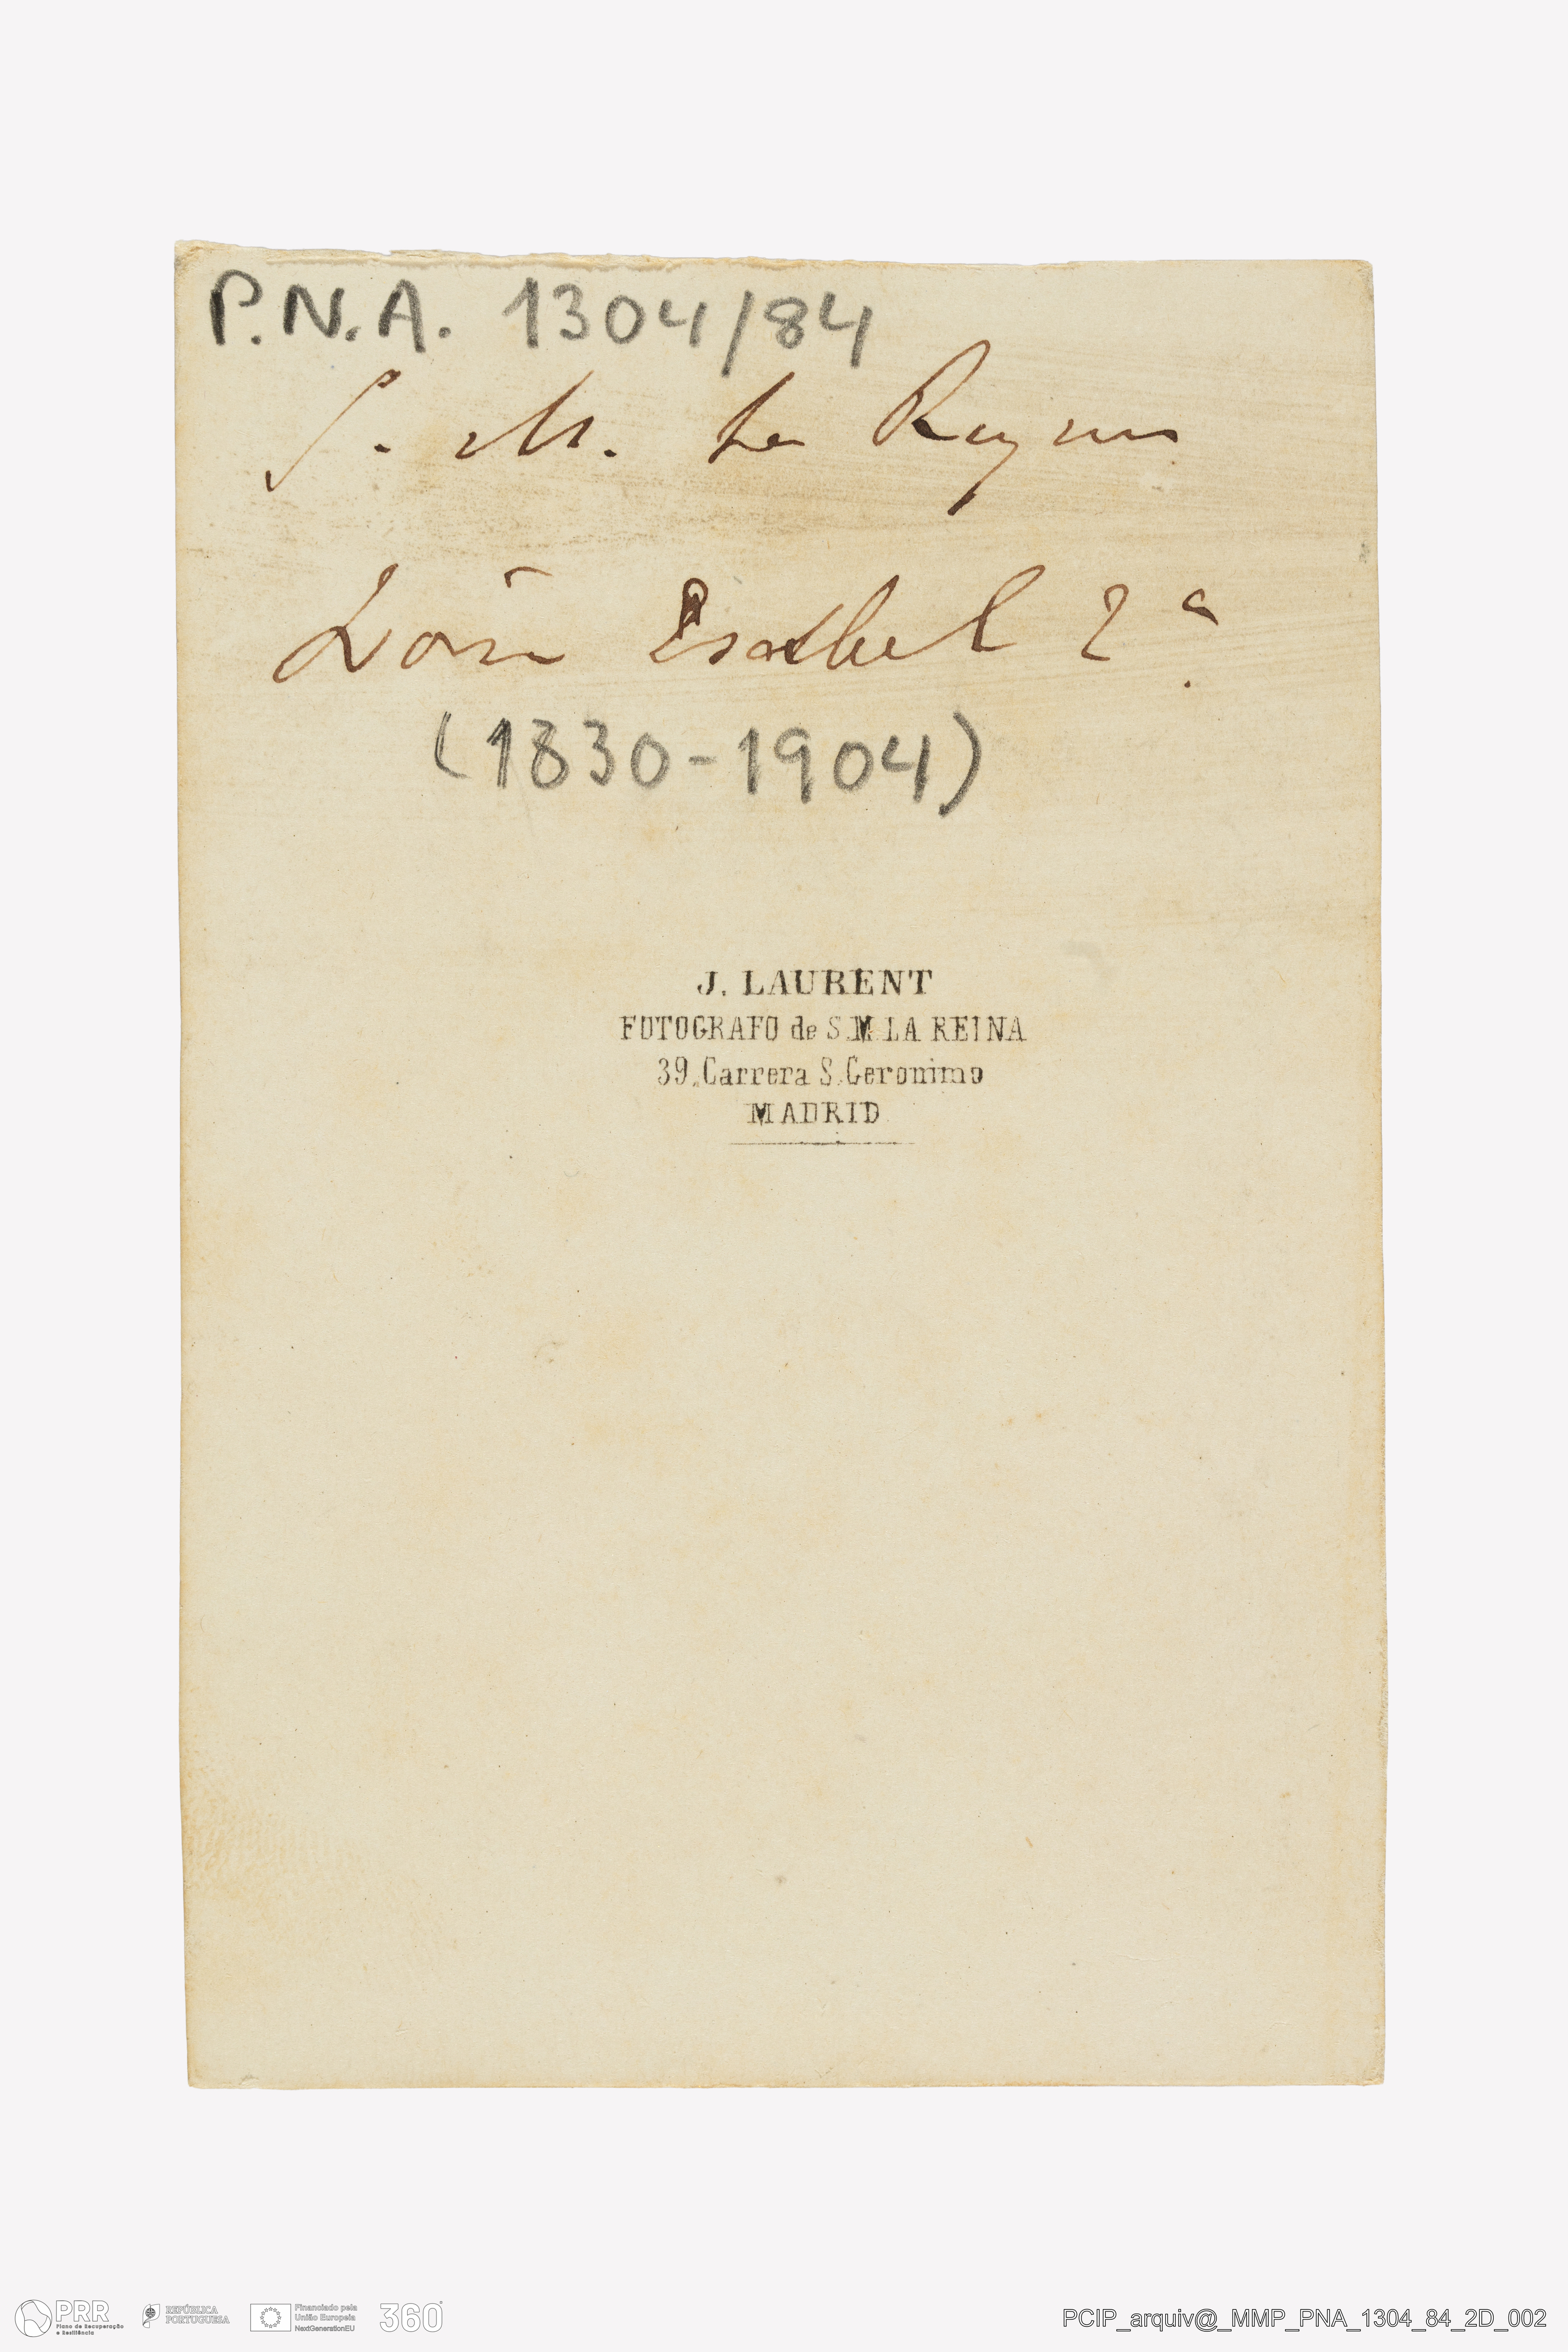 P.N.A. 1304/84
S. M. La Reyna
Doña Isabel 2ª.
(1830-1904)
J. LAURENT
FOTOGRAFO de S.M. LA REINA
39, Carrera S. Geronimo
MADRID
PRR
Plano de Recuperação
e Resiliência
REPÚBLICA
PORTUGUESA
Financiado pela
União Europeia
NextGenerationEU
360°
PCIP_arquiv@_MMP_PNA_1304_84_2D_002